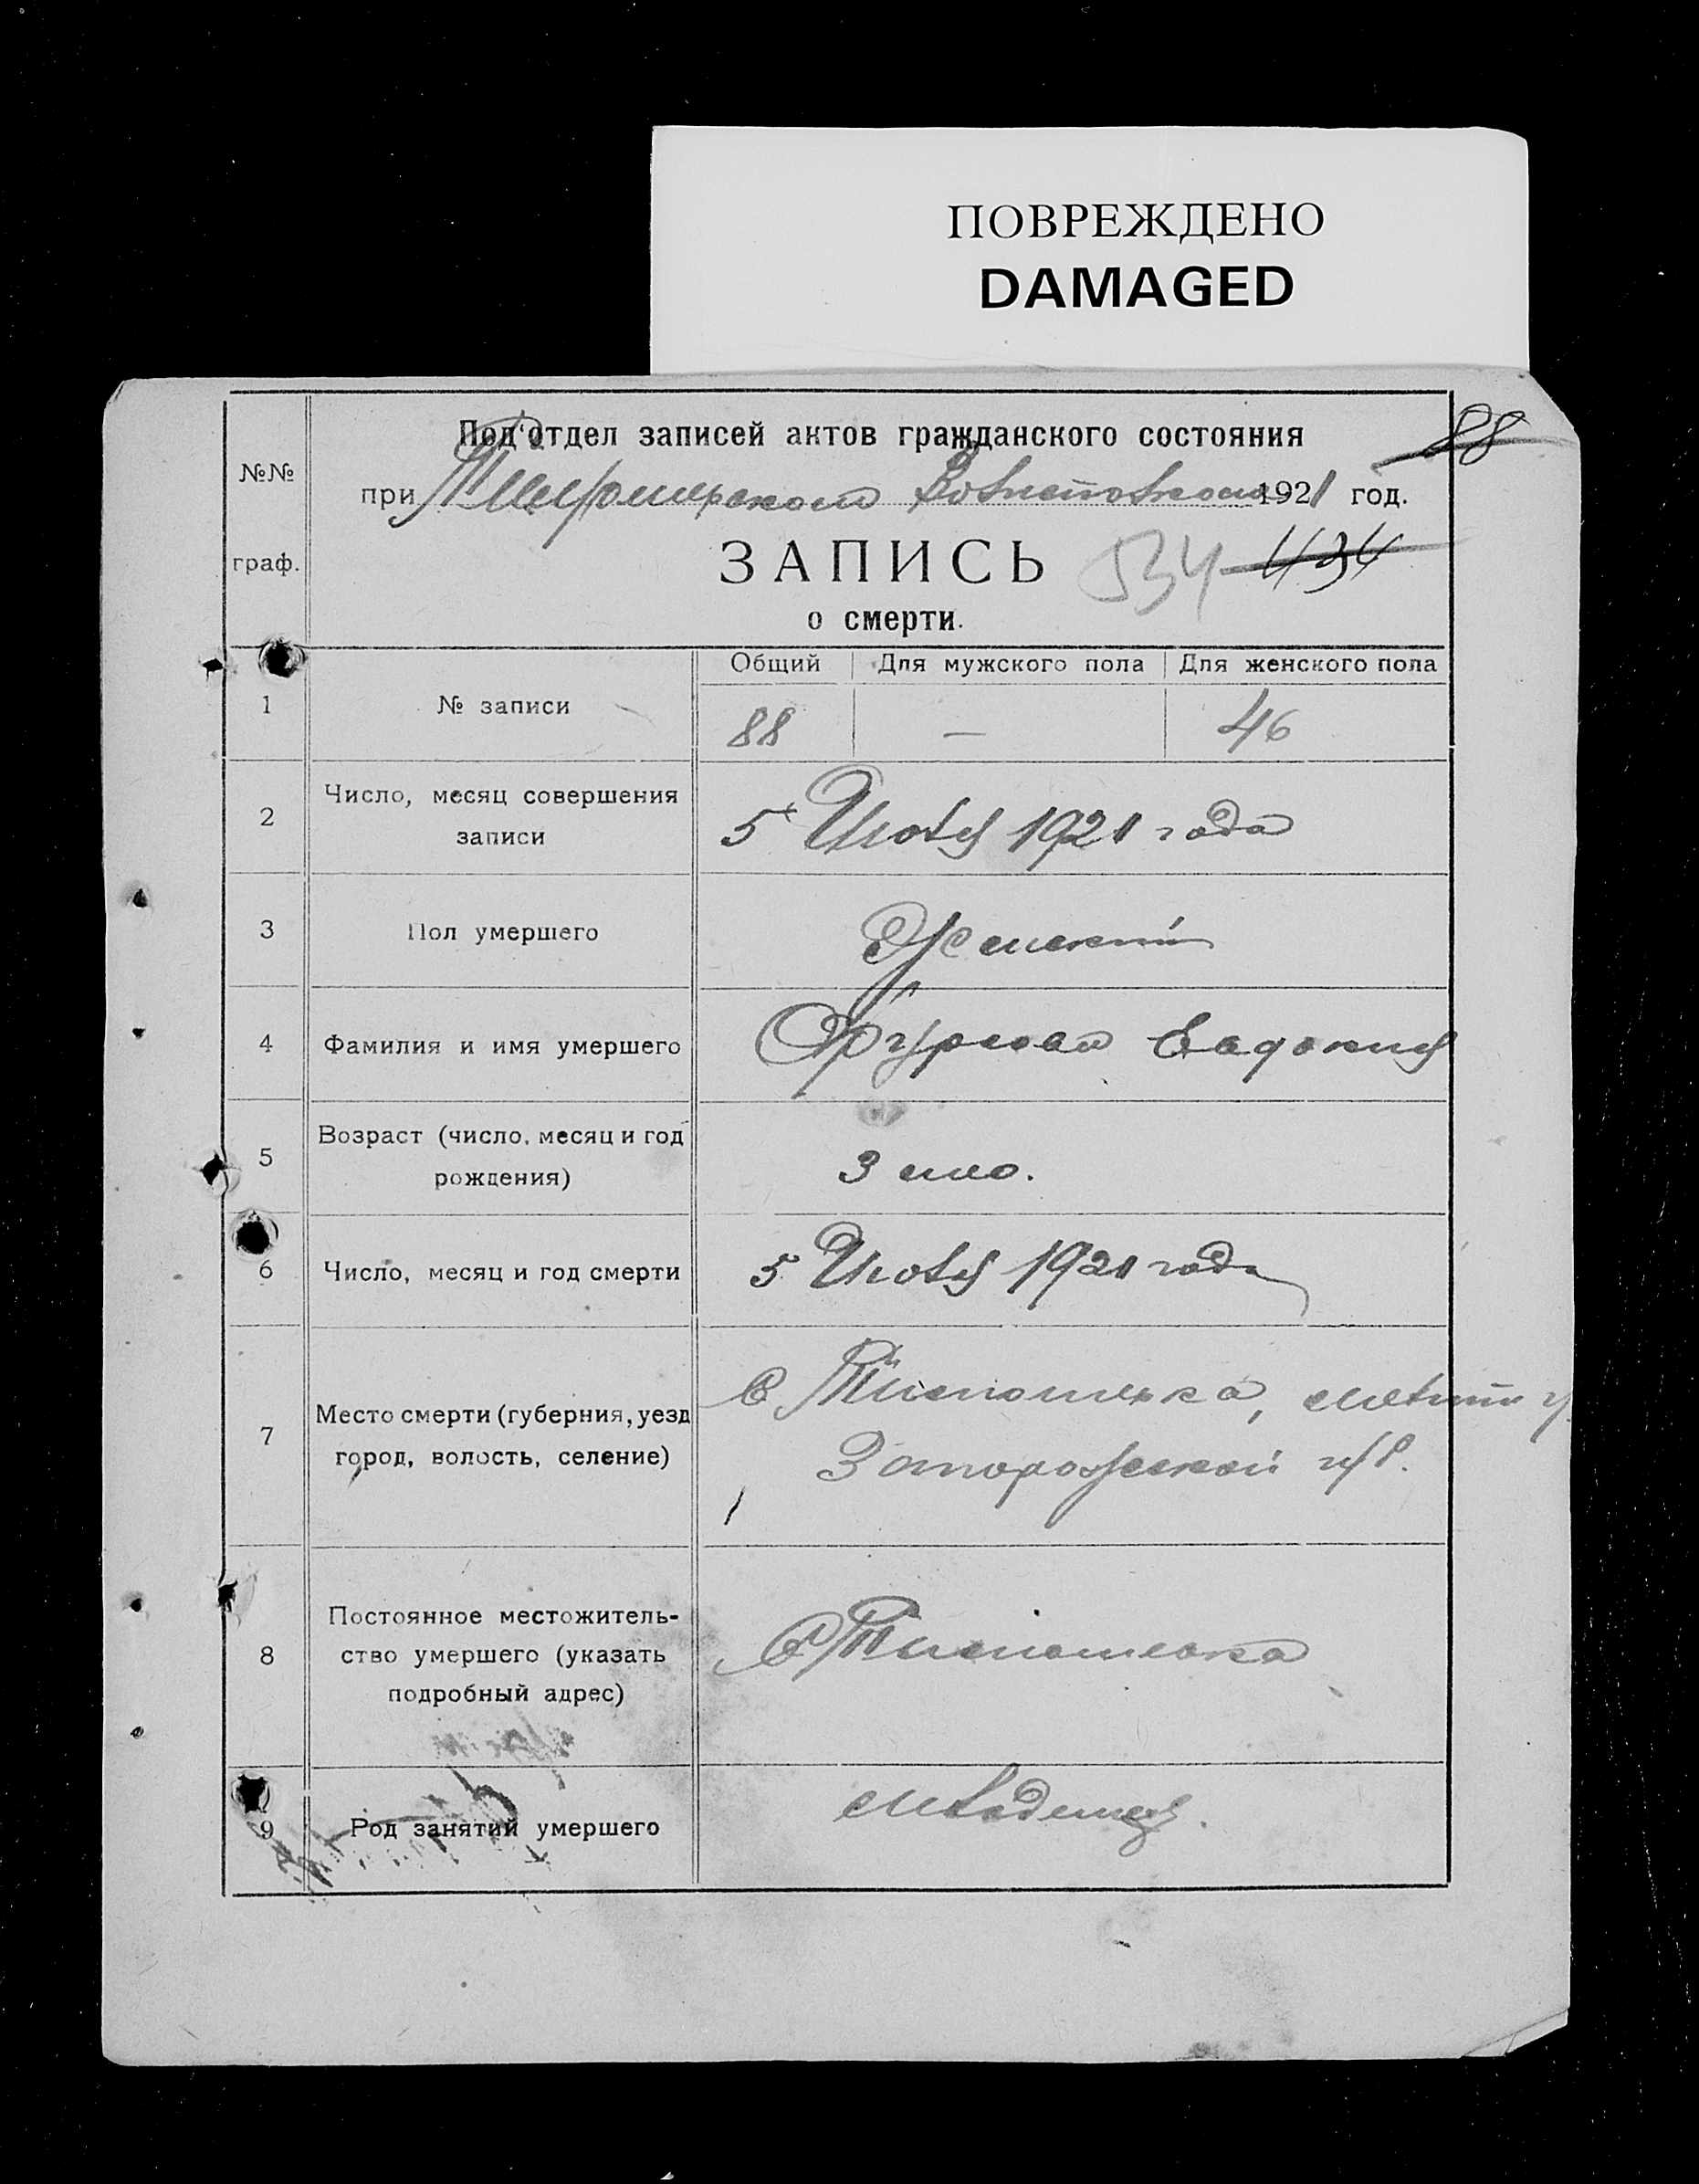 ПОВРЕЖДЕНО
DAMAGED
88
Под'отдел записей актов гражданского состояния
№№
при 1921 год.
ЗАПИСЬ 534 434
граф.
о смерти.
Общий Для мужского пола Для женского пола
1 № записи 88 — 46
2 Число, месяц совершения
записи
5 Июля 1921 года
3 Пол умершего Женский
4 Фамилия и имя умершего Евдокия
5 Возраст (число, месяц и год
рождения)
3 мес.
6 Число, месяц и год смерти 5 Июля 1921 года
7 Место смерти (губерния, уезд
город, волость, селение)
С Тимошевка, Мелит у.
Запорожской губ.
8 Постоянное местожитель-
ство умершего (указать
подробный адрес)
С Тимошевка
9 Род занятий умершего младенец.